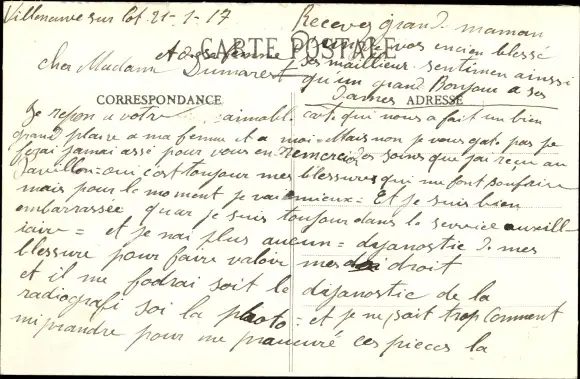 Villeneuve sur Lot. 21-1-17
Recevez grand. maman
CARTE POSTALE
de vos encien blessé
ses mailleur sentimen ainsi
cher Madame Dumarest
qu'un grand Bonjou a ses
Dames
CORRESPONDANCE
ADRESSE
Je repon a votre aimable carte qui nous a fait un bien
grand plaire a ma femme et a moi = Mais non je vous gate pas je
ferai jamai assé pour vous en remercié des soins que j'ai reçu au
Pavillon = oui c'est toujour mes blessures qui me font soufrire
mais pour le moment je vai mieux = Et je suis bien
embarrassée quar je suis toujour dans le service auxill
iaire = et je nai plus aucun = dijanostic d. mes
blessure pour faire valoir mes droit
et il me fodrai soit le dijanostic de la
radiografi soi la photo = et je ne sait trop comment
mi prendre pour me praucuré ces pieces la